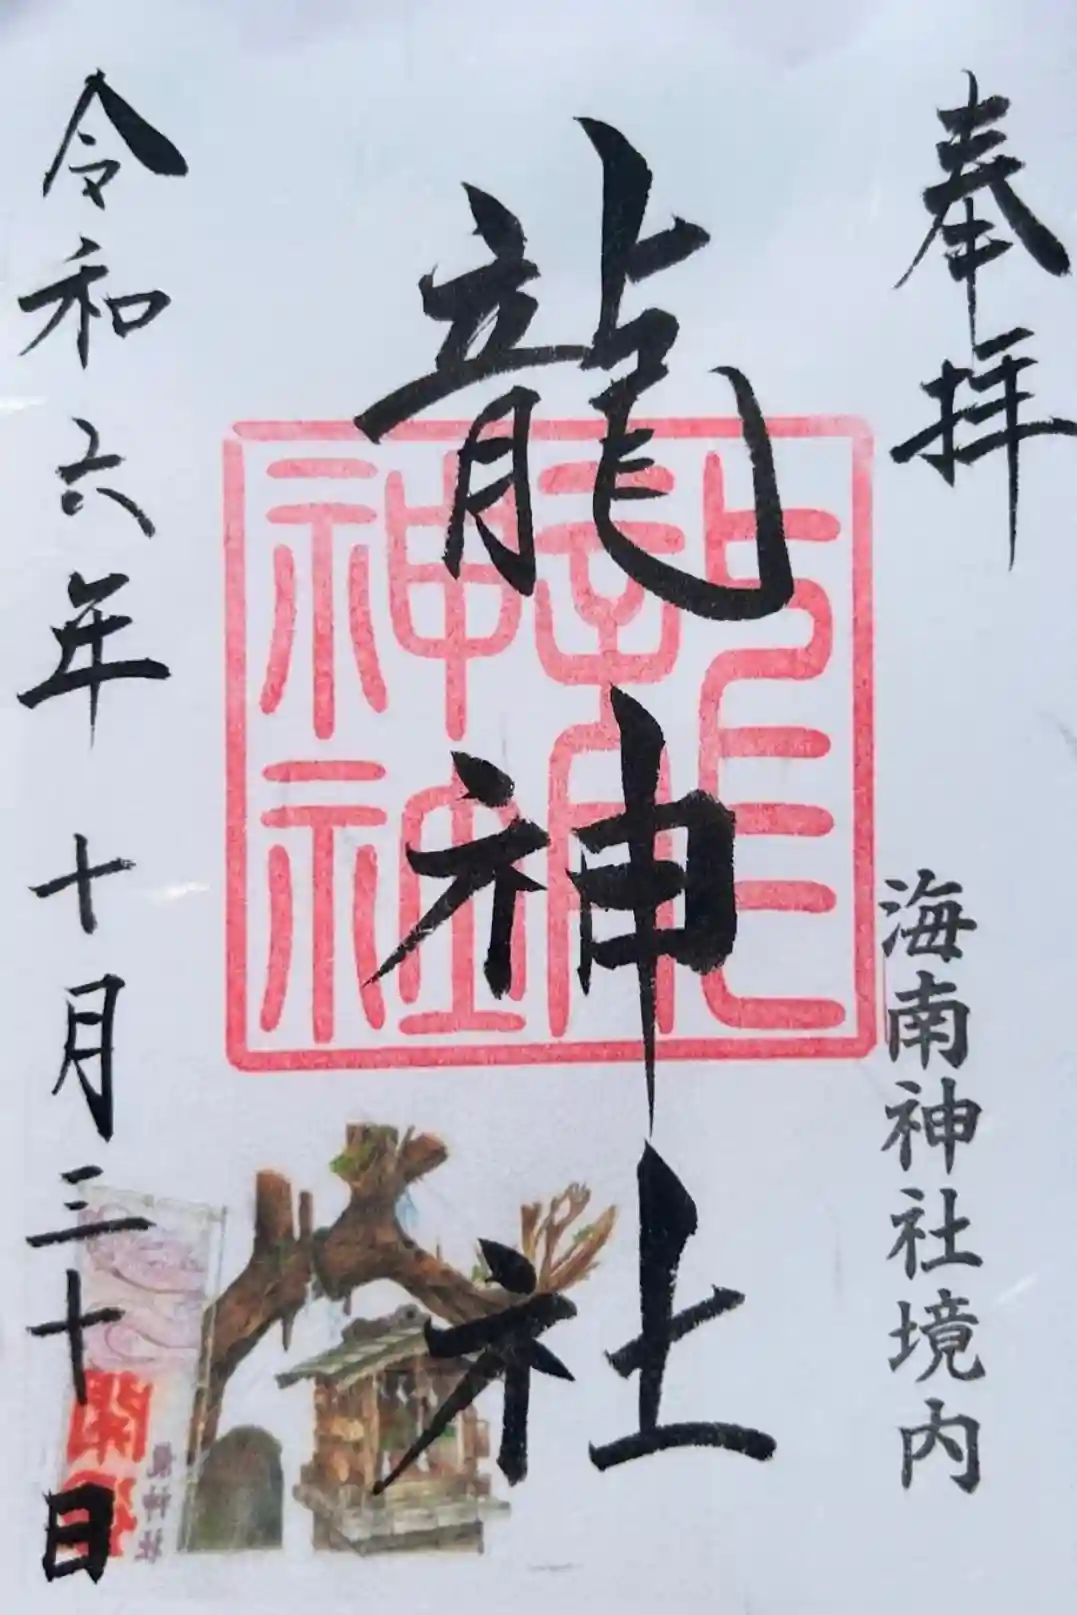 奉拝
海南神社境内
龍神社
龍神社
令和六年十月三十日
開運
龍神社